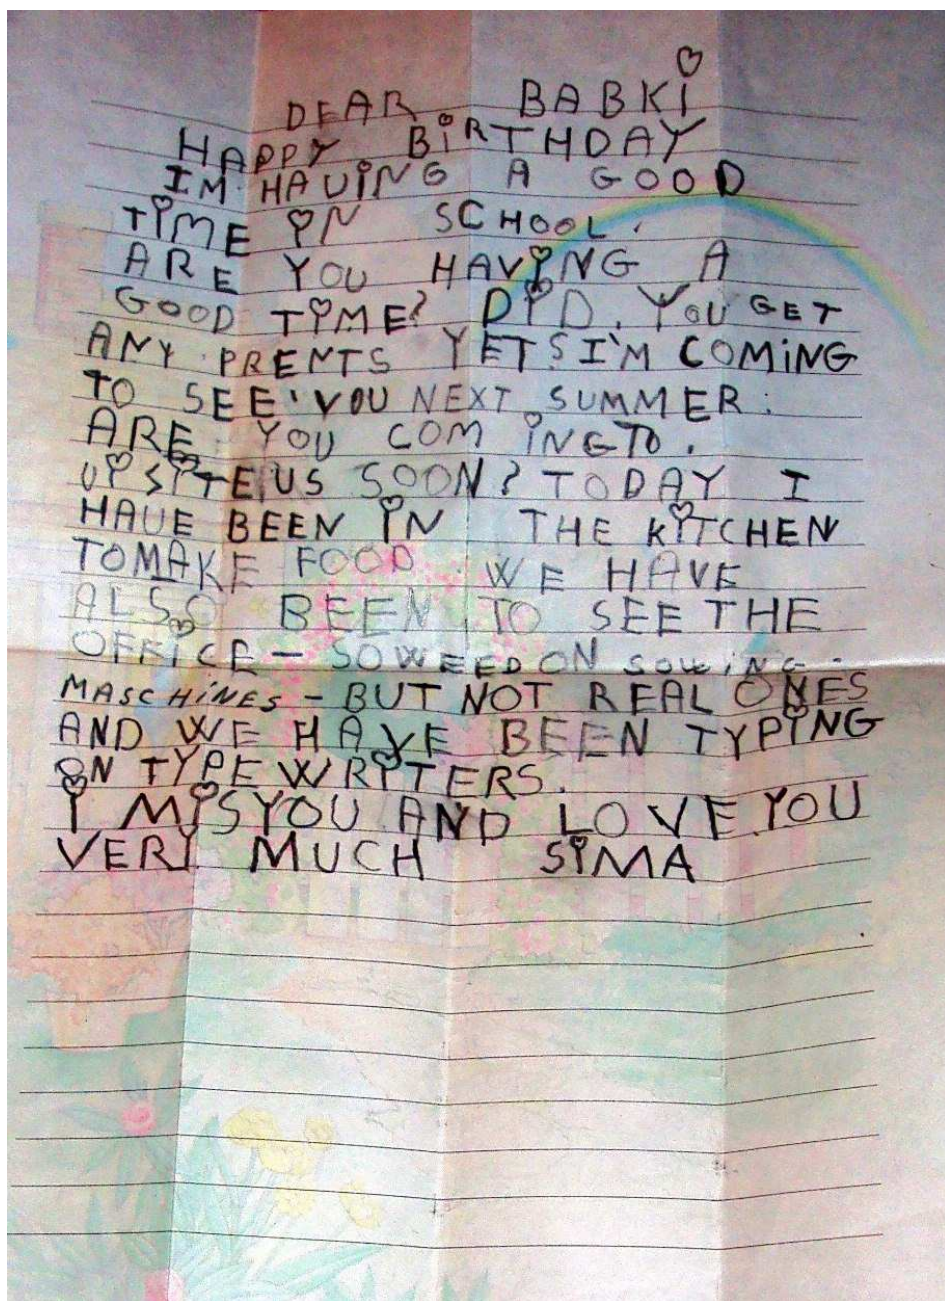 DEAR BABKi
HAPPY BiRTHDAY
IM HAUiNG A GOOD
TiME iN SCHOOL.
ARE YOU HAViNG A
GOOD TiME? DiD. YOU GET
ANY PRENTS YET? I'M COMiNG
TO SEE YOU NEXT SUMMER.
ARE YOU COM iNGTO.
UiSiTE US SOON? TODAY I
HAUE BEEN iN THE KiTCHEN
TOMAKE FOOD. WE HAVE
ALSO BEEN TO SEE THE
OFFiCE - SOWEEDON SOWiNG.
MASCHiNES - BUT NOT REAL ONES
AND WE HAVE BEEN TYPiNG
ON TYPE WRiTERS.
i MiSYOU AND LOVE YOU
VERY MUCH SiMA